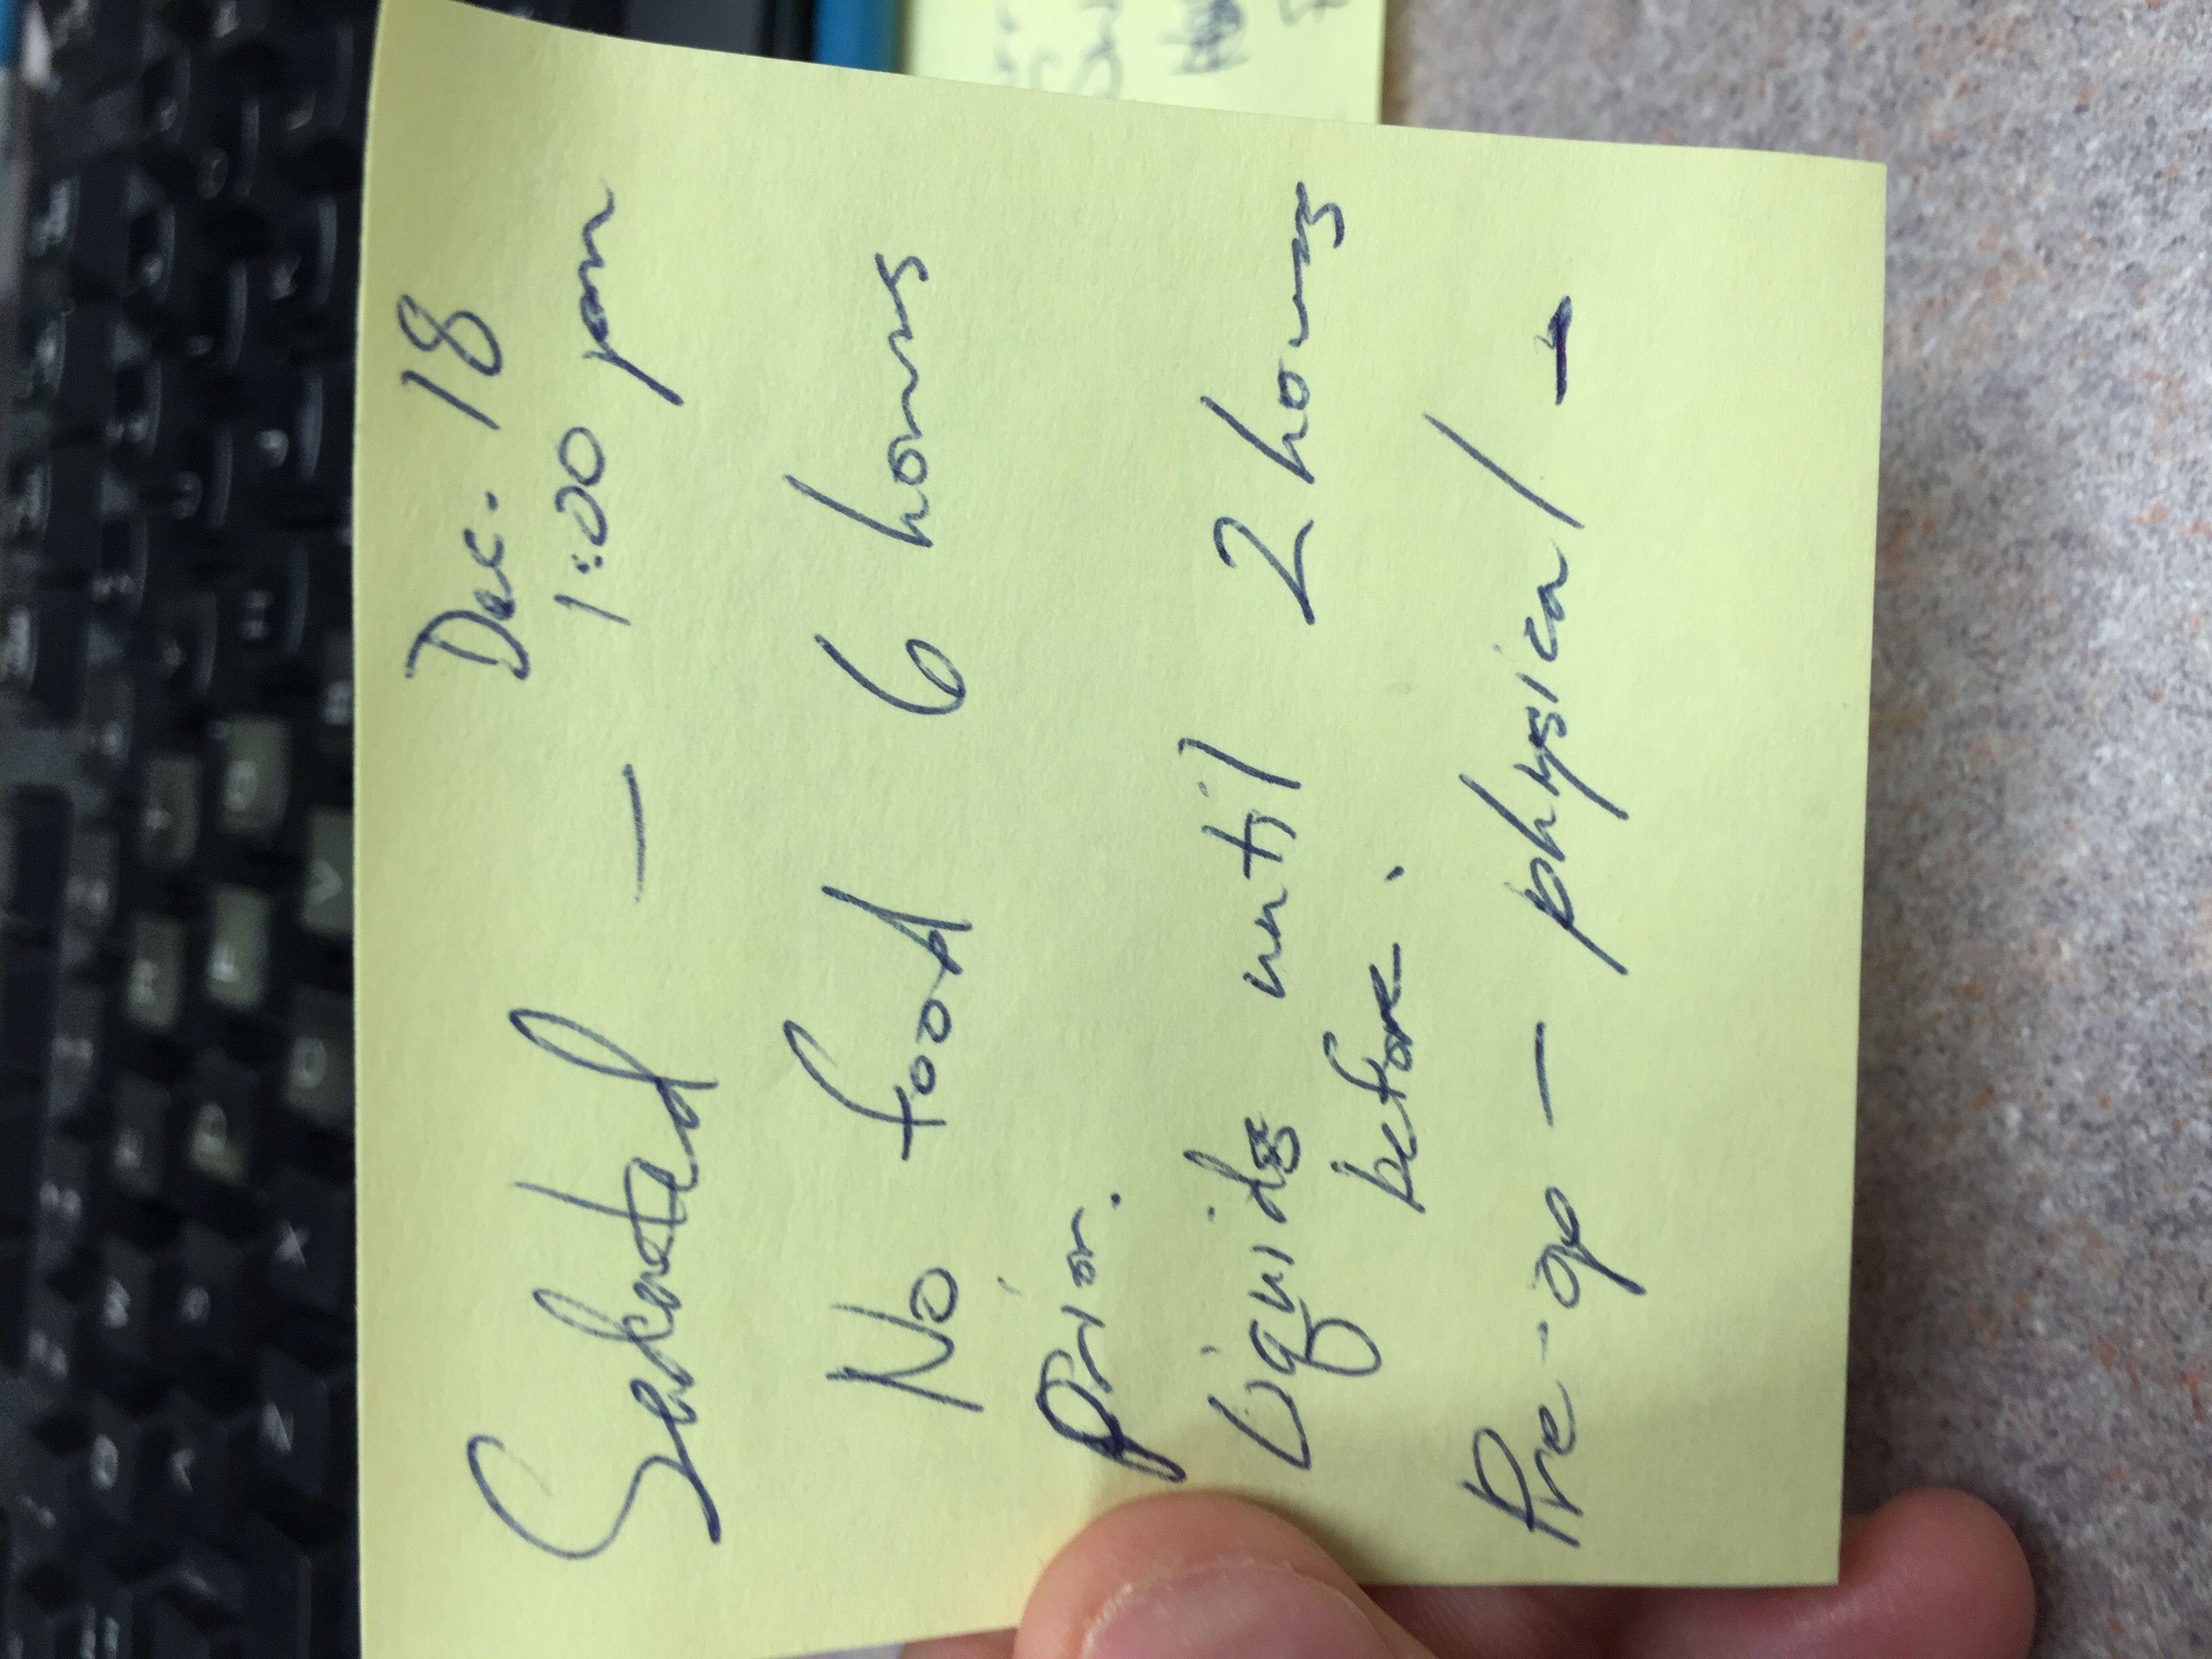 Dec. 18
Scheduled — 1:00 pm
No food 6 hours
prior.
Liquids until 2 hours
before.
Pre-op — physical -